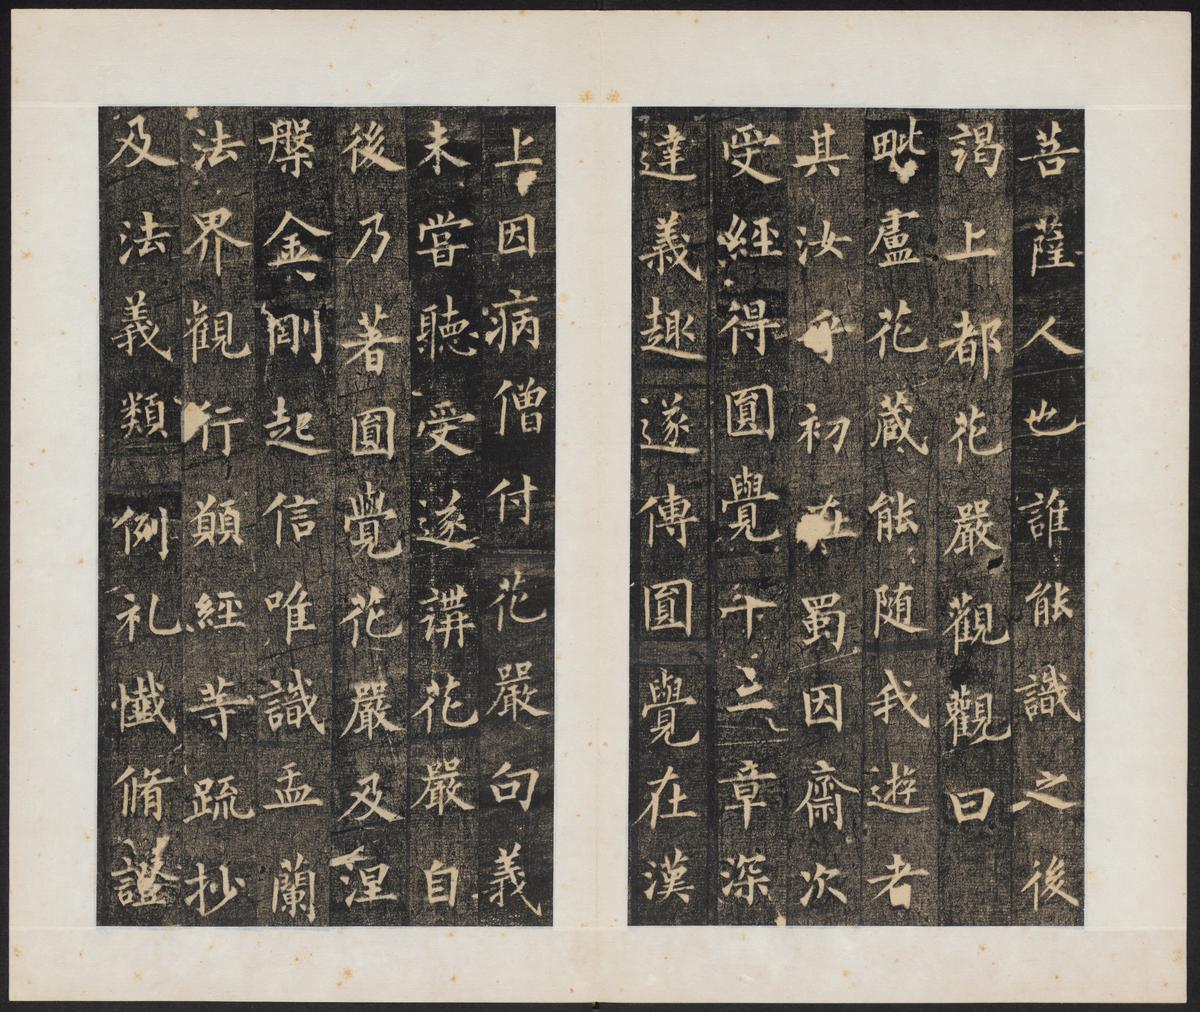 菩薩人也誰能識之後
謁上都花嚴觀觀曰
毗盧花藏能随我遊者
其汝乎初在蜀因齋次
受經得圓覺十三章深
達義趣遂傳圓覺在漢
上因病僧付花嚴句義
未嘗聽受遂講花嚴自
後乃著圓覺花嚴及涅
槃金剛起信唯識盂蘭
法界觀行願經等疏抄
及法義類例礼懺脩證